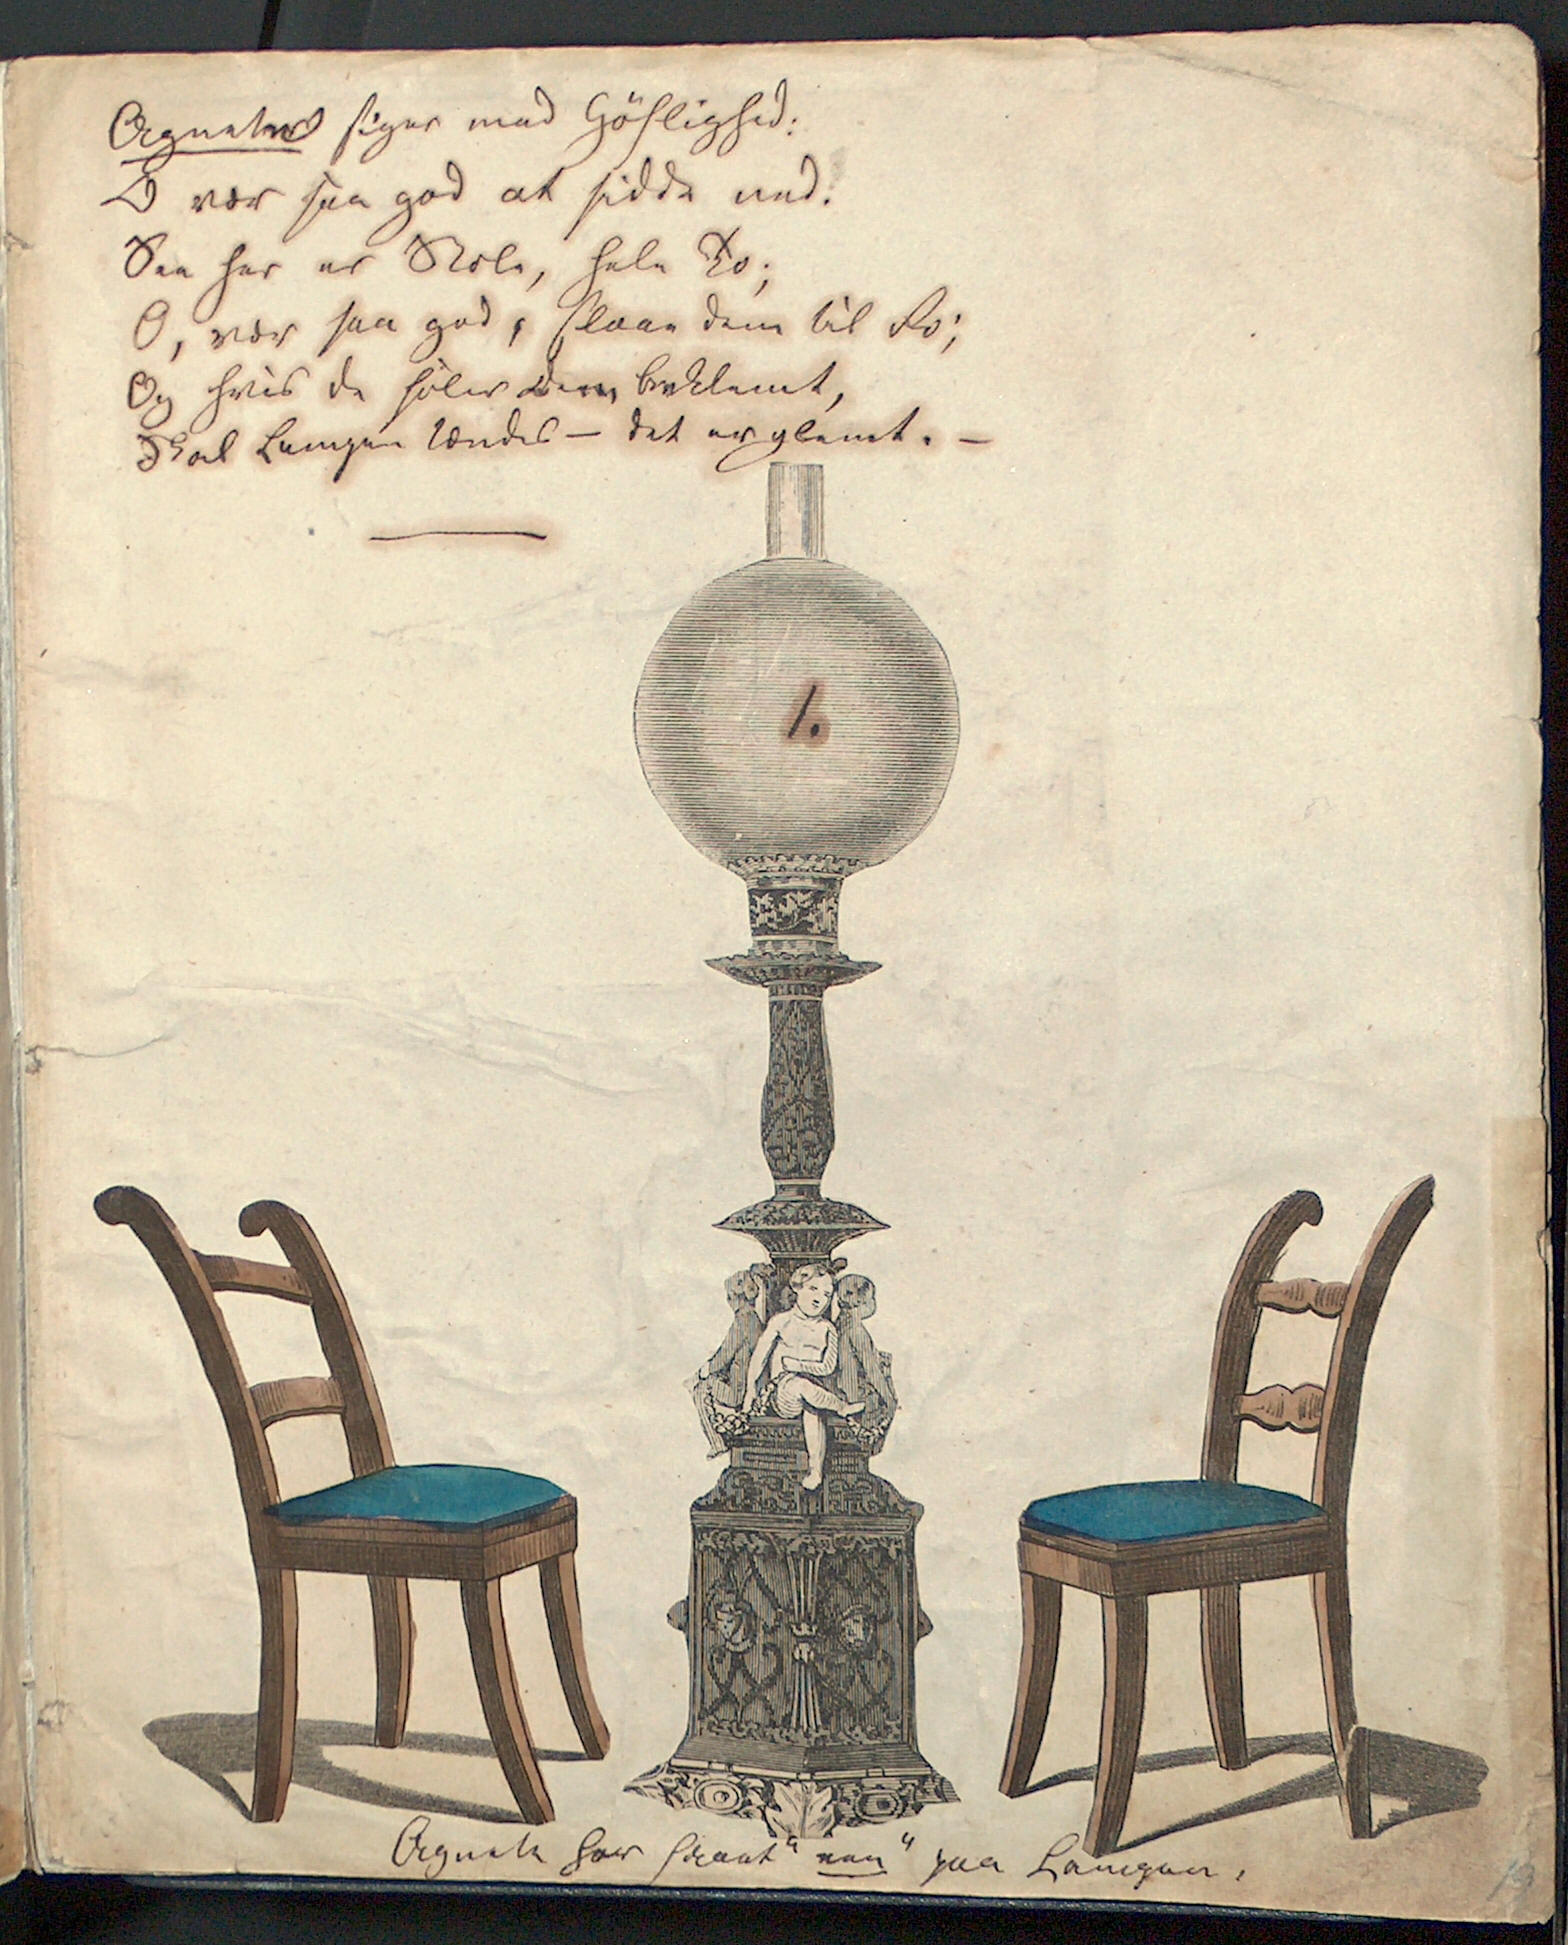 Agnete siger med Höflighed:
O vær saa god at sidde ned.
See her er Stole, hele To;
O, vær saa god, slaae dem til Ro;
Og hvis de föler Dem beklemt,
Skal Lampen tændes — det er glemt. —
1.
Agnete har skreevet "een" paa Lampen.
19